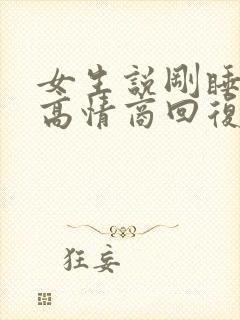 女生説剛睡
高情商回復
狂妄